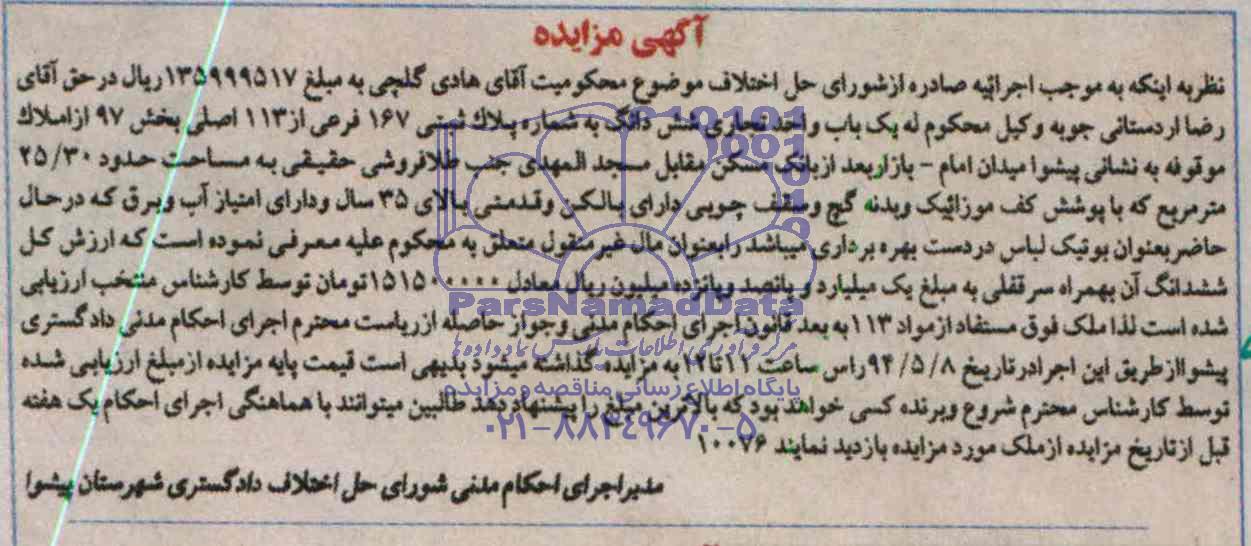 آگهی مزایده
نظر به اینکه به موجب اجرائیه صادره از شورای حل اختلاف موضوع محکومیت آقای هادی گلچی به مبلغ ۱۳۵۹۹۹۵۱۷ ریال در حق آقای
رضا اردستانی جوبه وکیل محکوم له یک باب واحد تجاری شش دانگ به شماره پلاک ثبتی ۱۶۷ فرعی از ۱۱۳ اصلی بخش ۹۷ از املاک
موقوفه به نشانی پیشوا میدان امام - بازار بعد از بانک مسکن مقابل مسجد المهدی جنب طلافروشی حقیقی به مساحت حدود ۲۵/۳۰
مترمربع که با پوشش کف موزائیک و بدنه گچ و سقف چوبی دارای بالکن و قدمتی بالای ۳۵ سال و دارای امتیاز آب و برق که در حال
حاضر بعنوان بوتیک لباس در دست بهره برداری میباشد را بعنوان مال غیر منقول متعلق به محکوم علیه معرفی نموده است که ارزش کل
ششدانگ آن بهمراه سرقفلی به مبلغ یک میلیارد و پانصد و پانزده میلیون ریال معادل ۱۵۱۵۰۰۰۰۰ تومان توسط کارشناس منتخب ارزیابی
شده است لذا ملک فوق مستفاد از مواد ۱۱۳ به بعد قانون اجرای احکام مدنی و جواز حاصله از ریاست محترم اجرای احکام مدنی دادگستری
پیشوا از طریق این اجرا در تاریخ ۹۴/۵/۸ راس ساعت ۱۱ تا ۱۲ به مزایده گذاشته میشود بدیهی است قیمت پایه مزایده از مبلغ ارزیابی شده
توسط کارشناس محترم شروع و برنده کسی خواهد بود که بالاترین مبلغ را پیشنهاد دهد طالبین میتوانند با هماهنگی اجرای احکام یک هفته
قبل از تاریخ مزایده از ملک مورد مزایده بازدید نمایند ۱۰۰۷۶
مدیر اجرای احکام مدنی شورای حل اختلاف دادگستری شهرستان پیشوا
ParsNamadData
مرکز فرآوری اطلاعات پارس نماد داده ها
پایگاه اطلاع رسانی مناقصه و مزایده
۰۲۱-۸۸۳۴۹۶۷۰-۵